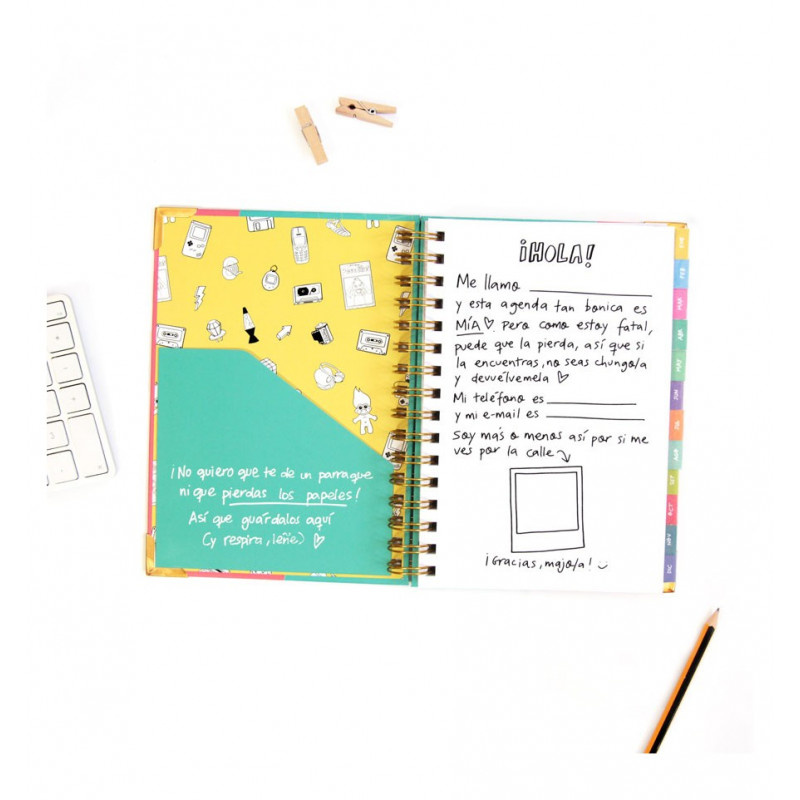 ¡No quiero que te de un parraque
ni que pierdas los papeles!
Así que guárdalos aquí
(y respira, leñe) ♡
¡HOLA!
Me llamo
y esta agenda tan bonica es
MÍA ♡. Pero como estoy fatal,
puede que la pierda, así que si
la encuentras, no seas chungo/a
y devuélvemela ♡
Mi teléfono es
y mi e-mail es
Soy más o menos así por si me
ves por la calle
¡Gracias, majo/a!
ENE
FEB
MAR
ABR
MAY
JUN
JUL
AGO
SEP
OCT
NOV
DIC